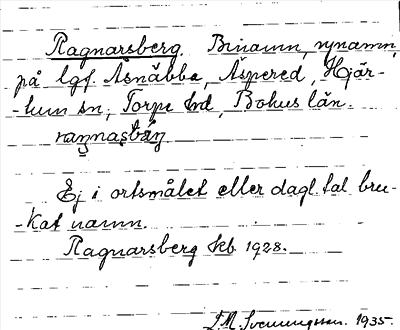 Ragnarsberg. Binamn, nynamn,
på lgf. Åsnäbba, Äspered, Hjär-
-tum sn, Torpe hd, Bohus län.
raŋnasbärj
Ej i ortsmålet eller dagl. tal bru-
-kat namn.
Ragnarsberg kb. 1928.
F.M. Svenungsson. 1935.